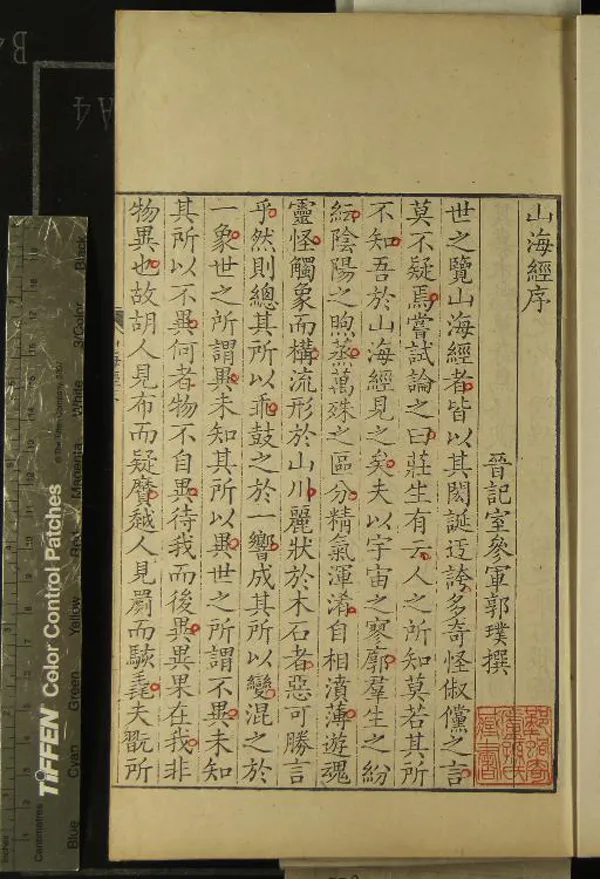 山海經序
晉記室參軍郭璞撰
世之覽山海經者皆以其閎誕迂誇多奇怪俶儻之言
莫不疑焉嘗試論之曰莊生有云人之所知莫若其所
不知吾於山海經見之矣夫以宇宙之寥廓羣生之紛
紜陰陽之煦蒸萬殊之區分精氣渾淆自相濆薄遊魂
靈怪觸象而構流形於山川麗狀於木石者惡可勝言
乎然則總其所以乖鼓之於一響成其所以變混之於
一象世之所謂異未知其所以異世之所謂不異未知
其所以不異何者物不自異待我而後異異果在我非
物異也故胡人見布而疑黂越人見罽而駭毳夫翫所
TIFFEN Color Control Patches
© The Tiffen Company, 2007
Blue
Cyan
Green
Yellow
Red
Magenta
White
3/Color
Black
Inches
Centimetres
A4